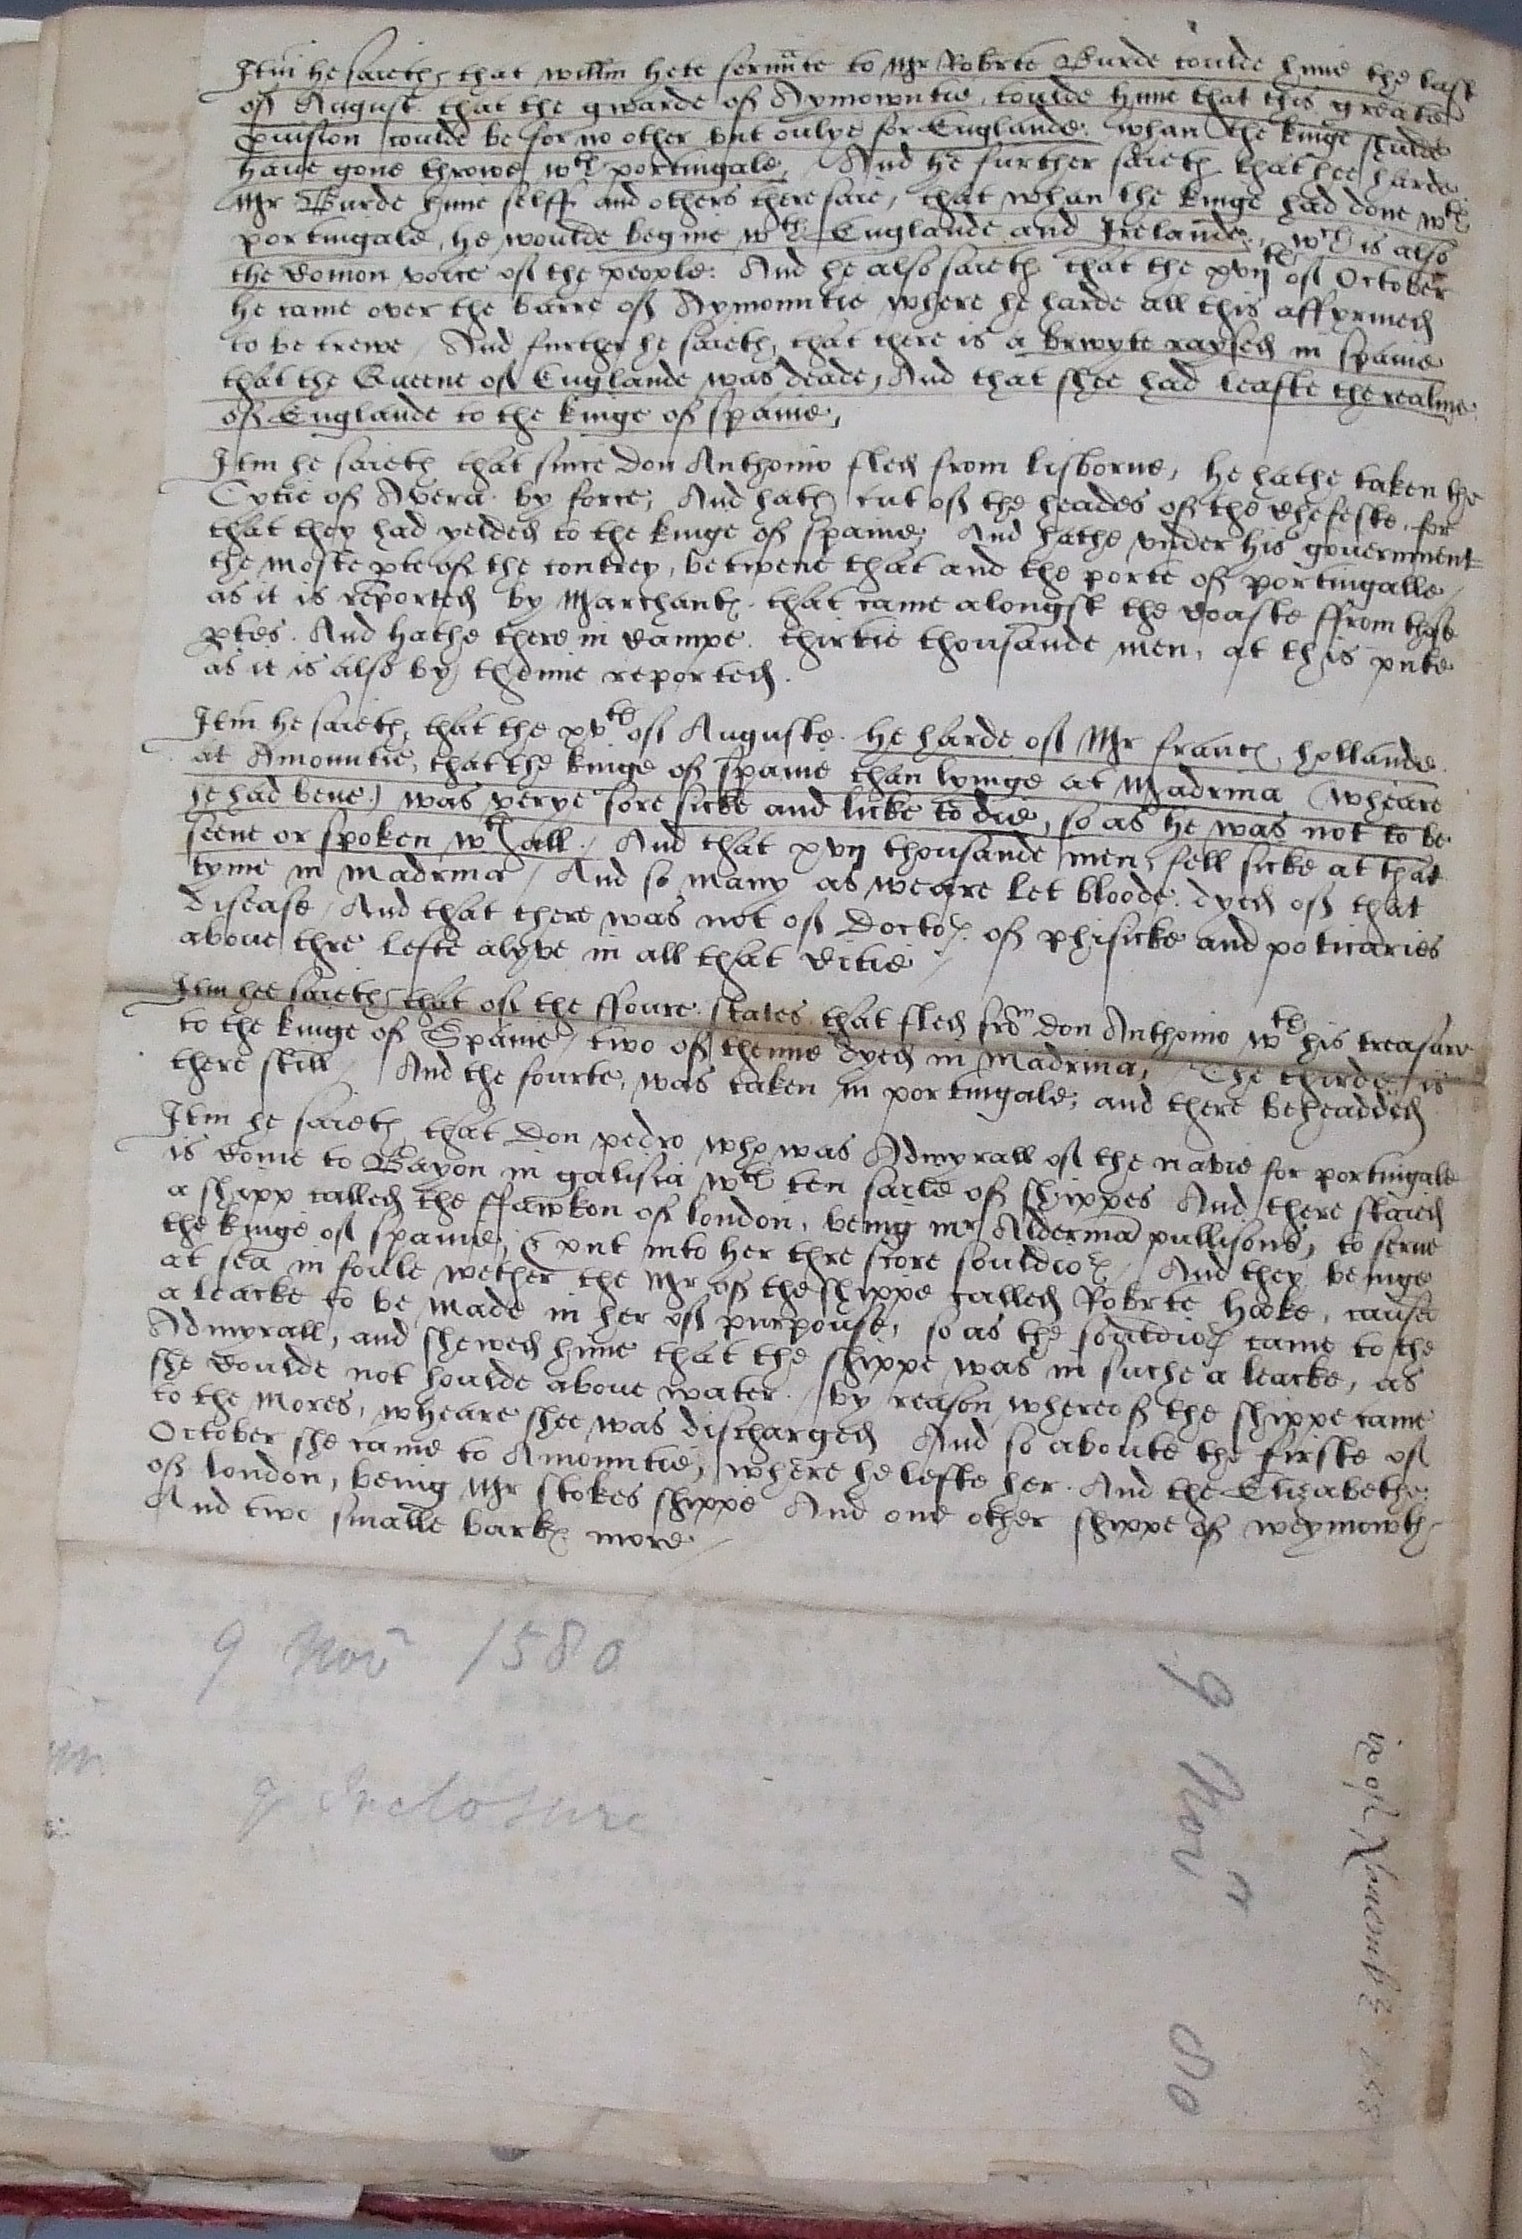 Itm he saieth, that willm Hete servnte to Mr Robrte Burde toulde hime the last
of August that the gwarde of Aymowntie, toulde hime that this greate
pvision coulde be for no other but onlye for Englande. whan the kinge shulde
have gone throwe wth portingale, And he further saieth that hee harde
Mr Burde hime selff and others there saie, that whan the kinge had done wth
portingale, he woulde begine wth Englande and Irelande, wch is also
the comon voice of the people: And he also saieth that the xvijth of October
he came over the barre of Aymonntie where he harde all this affyrmed
to be trewe / And further he saieth, that there is a brwyte raysed in spaine
that the Queene of Englande was deade, And that shee had leafte the realme
of Englande to the kinge of spaine,
Itm he saieth that since Don Anthonio fled from lisborne, he hathe taken the
Cytie of Avera by force, And hath cut of the heades of the chefeste for
that they had yelded to the kinge of spaine, And hathe under his government
the moste pte of the contrey, betwene that and the porte of portingalle
as it is reported by Marchants that came alongst the coaste ffrom those
ptes. And hathe there in campe thirtie thousande men, at this pnte
as it is also by theime reported.
Itm he saieth, that the xvth of Auguste he harde of Mr Francs hollande
at Amonntie, that the kinge of Spaine than lyinge at Madrina (wheare
he had bene) was verye sore sicke and licke to die, so as he was not to be
seene or spoken wth all / And that xvij thousande men fell sicke at that
tyme in Madrina / And so many as weare let bloode dyed of that
disease / And that there was not of Doctors of phisicke and poticaries
above thre lefte alyve in all that Citie /
Itm hee saieth that of the ffoure states that fled from Don Anthonio wth his treasure
to the kinge of Spaine, two of theime dyed in Madrina, The thirde is
there still / And the fourte, was taken in portingale, and there beheadded
Itm he saieth that Don pedro who was Admyrall of the navie for portingale
is come to Bayon in galisia wth ten saile of shippes And there staied
a shipp called the ffawkon of london, being mr Alderma pullisons, to serve
the kinge of spaine, & put into her thre score souldiors / And they beinge
at sea in foule wether the Mr of the shippe called Robrte Hooke, caused
a leacke to be made in her of purpouse, so as the souldiors came to the
Admyrall, and shewed hime that the shippe was in suche a leacke, as
she coulde not houlde above water. by reason whereof the shippe came
to the Mores, wheare shee was discharged And so aboute the firste of
October she came to Amonntie, where he lefte her. And the Elizabethe
of london, being Mr stokes shippe And one other shippe of weymowth
And two smalle barks more /
9 Nov 1580
9 Inclosure
9 Nov 80